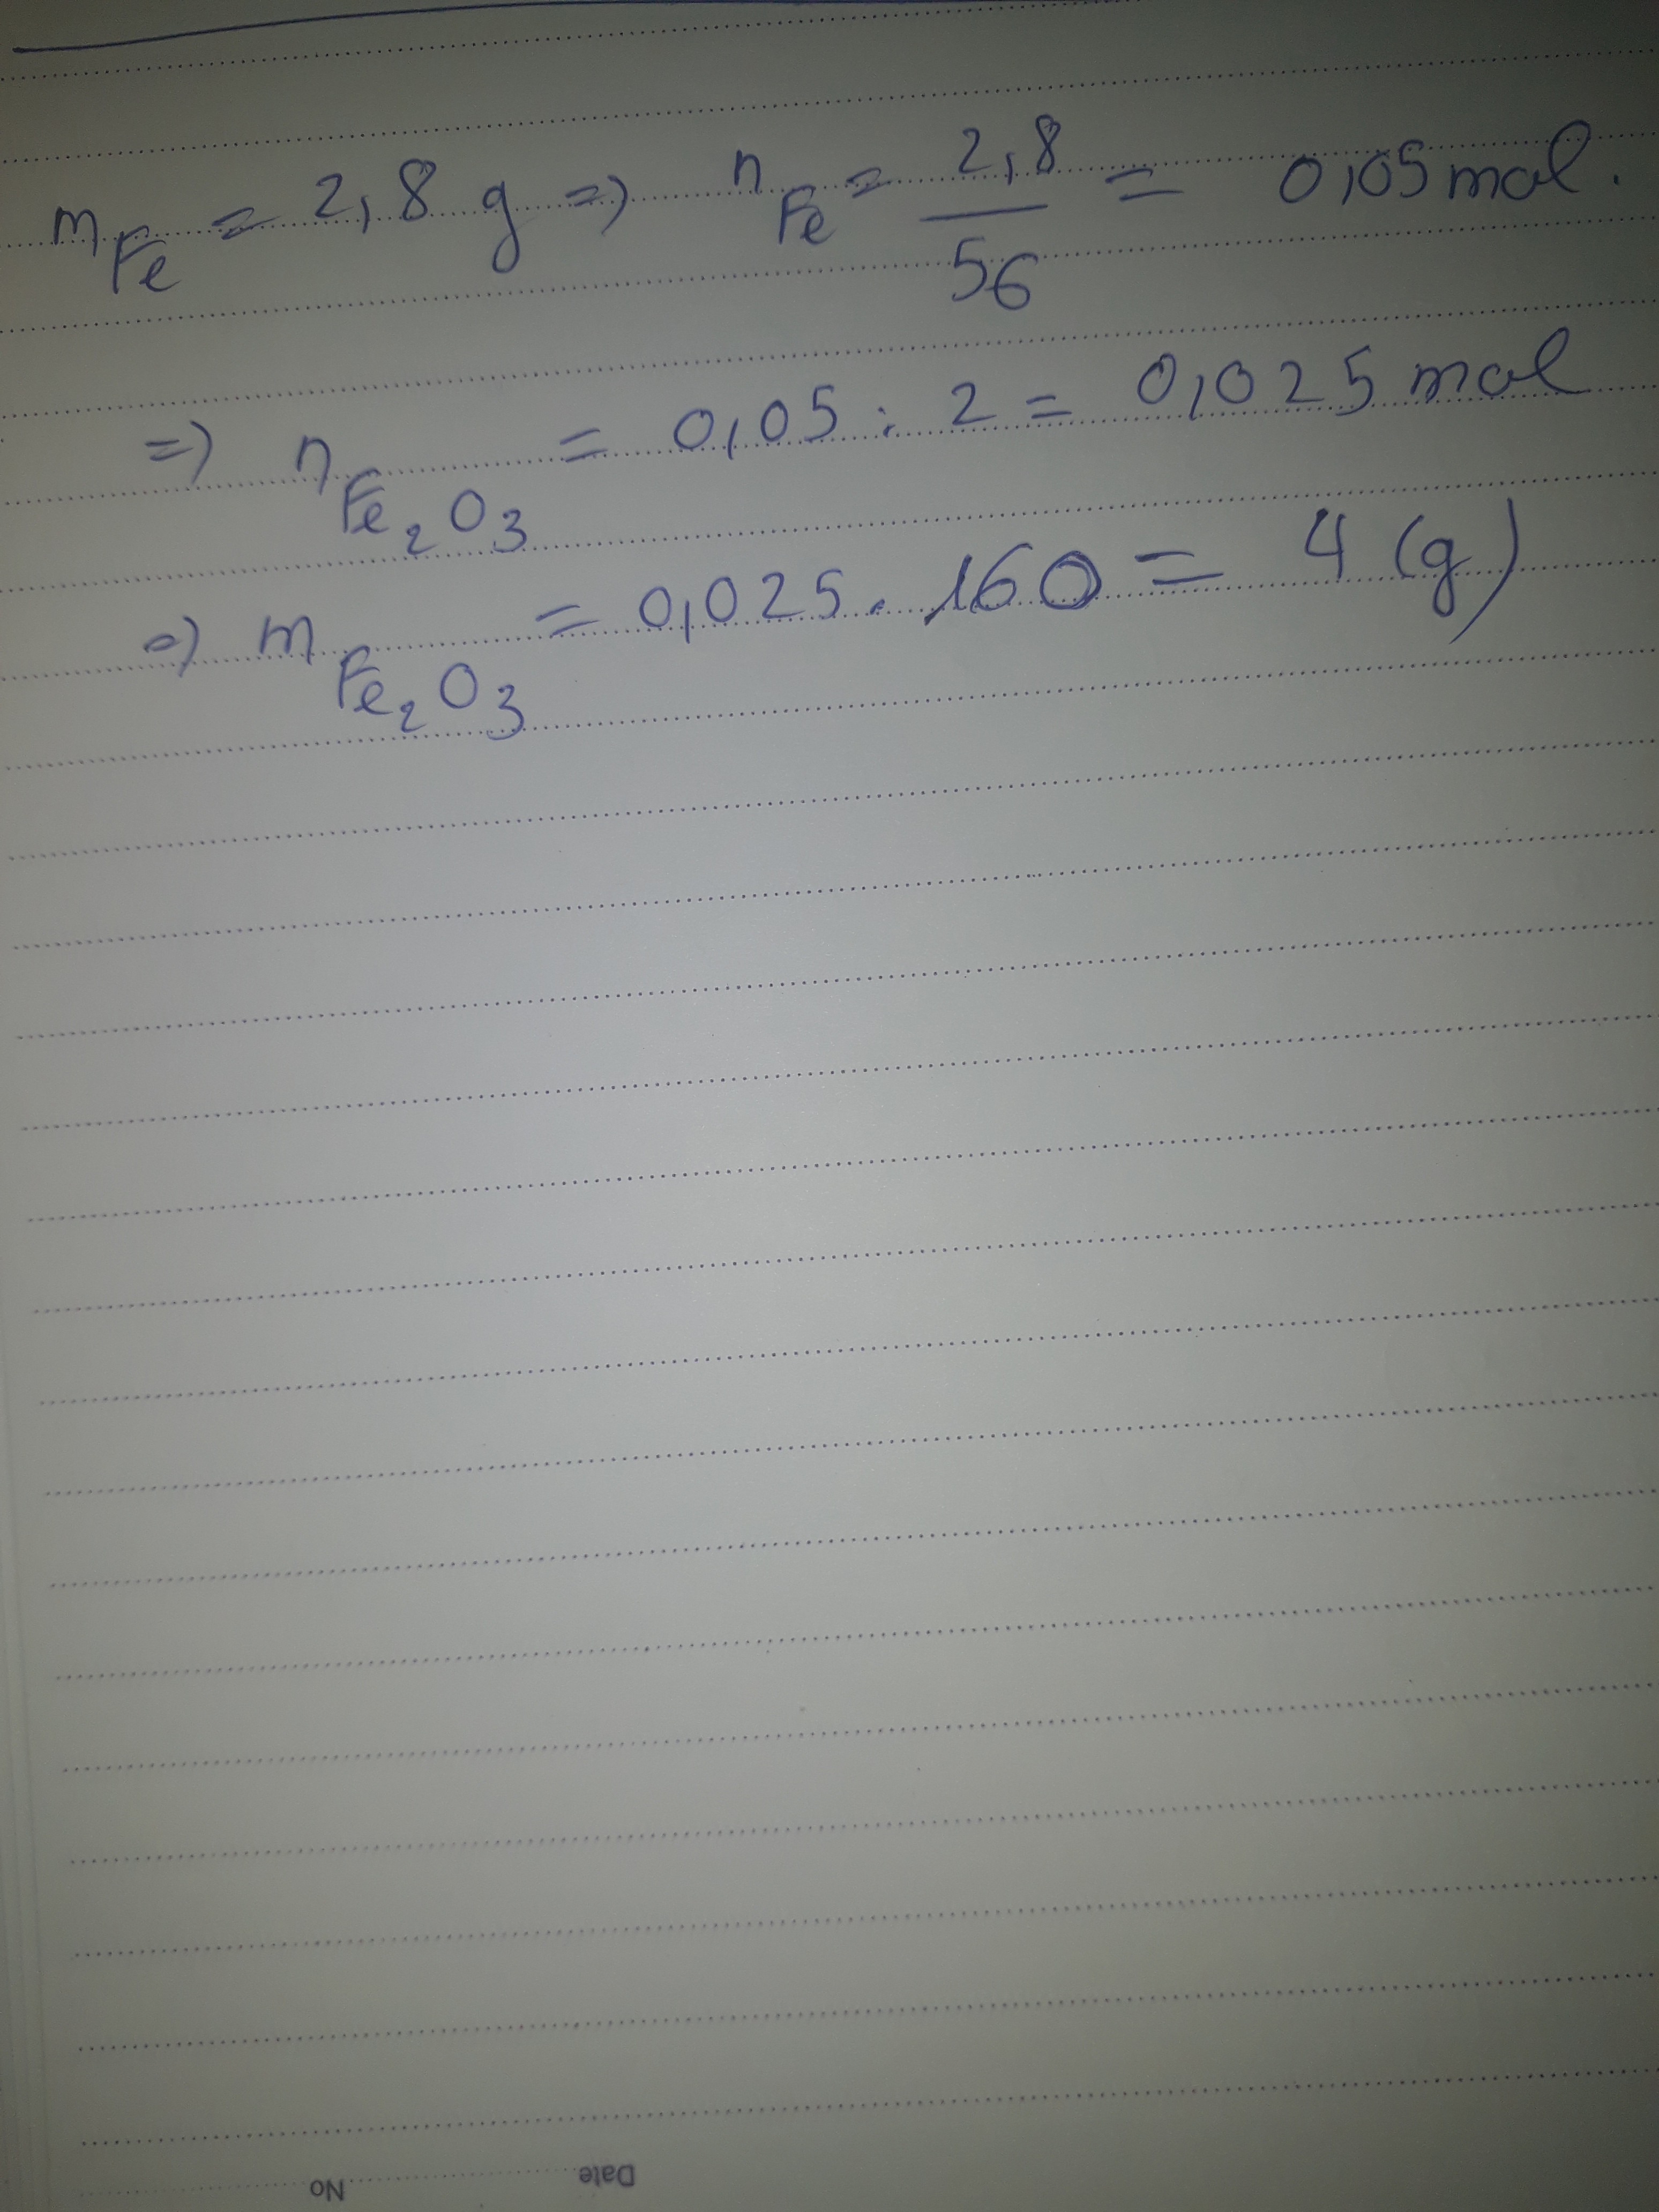 m Fe = 2,8 g => n Fe = 2,8 / 56 = 0,05 mol.
=> n Fe2O3 = 0,05 : 2 = 0,025 mol
=> m Fe2O3 = 0,025 . 160 = 4 (g)
No Date